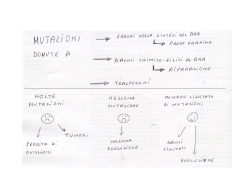 MUTAZIONI
DOVUTE A
ERRORI NELLA SINTESI DEL DNA
DANNI CHIMICO-FISICI AL DNA
RIPARAZIONE
TRASPOSONI
MOLTE
MUTAZIONI
NESSUNA
MUTAZIONE
NUMERO LIMITATO
DI MUTAZIONI
PERDITA DI
FUNZIONI
TUMORI
NESSUNA
EVOLUZIONE
DANNI
LIMITATI
EVOLUZIONE